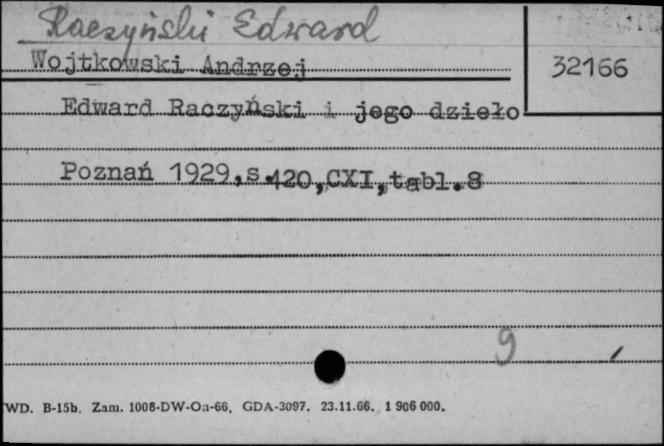 Raczyński Edward
Wojtkowski Andrzej
32166
Edward Raczyński i jego dzieło
Poznań 1929,s.420,CXI,tabl.8
9
WD. B-15b. Zam. 1008-DW-On-66. GDA-3097. 23.11.66. 1 906 000.